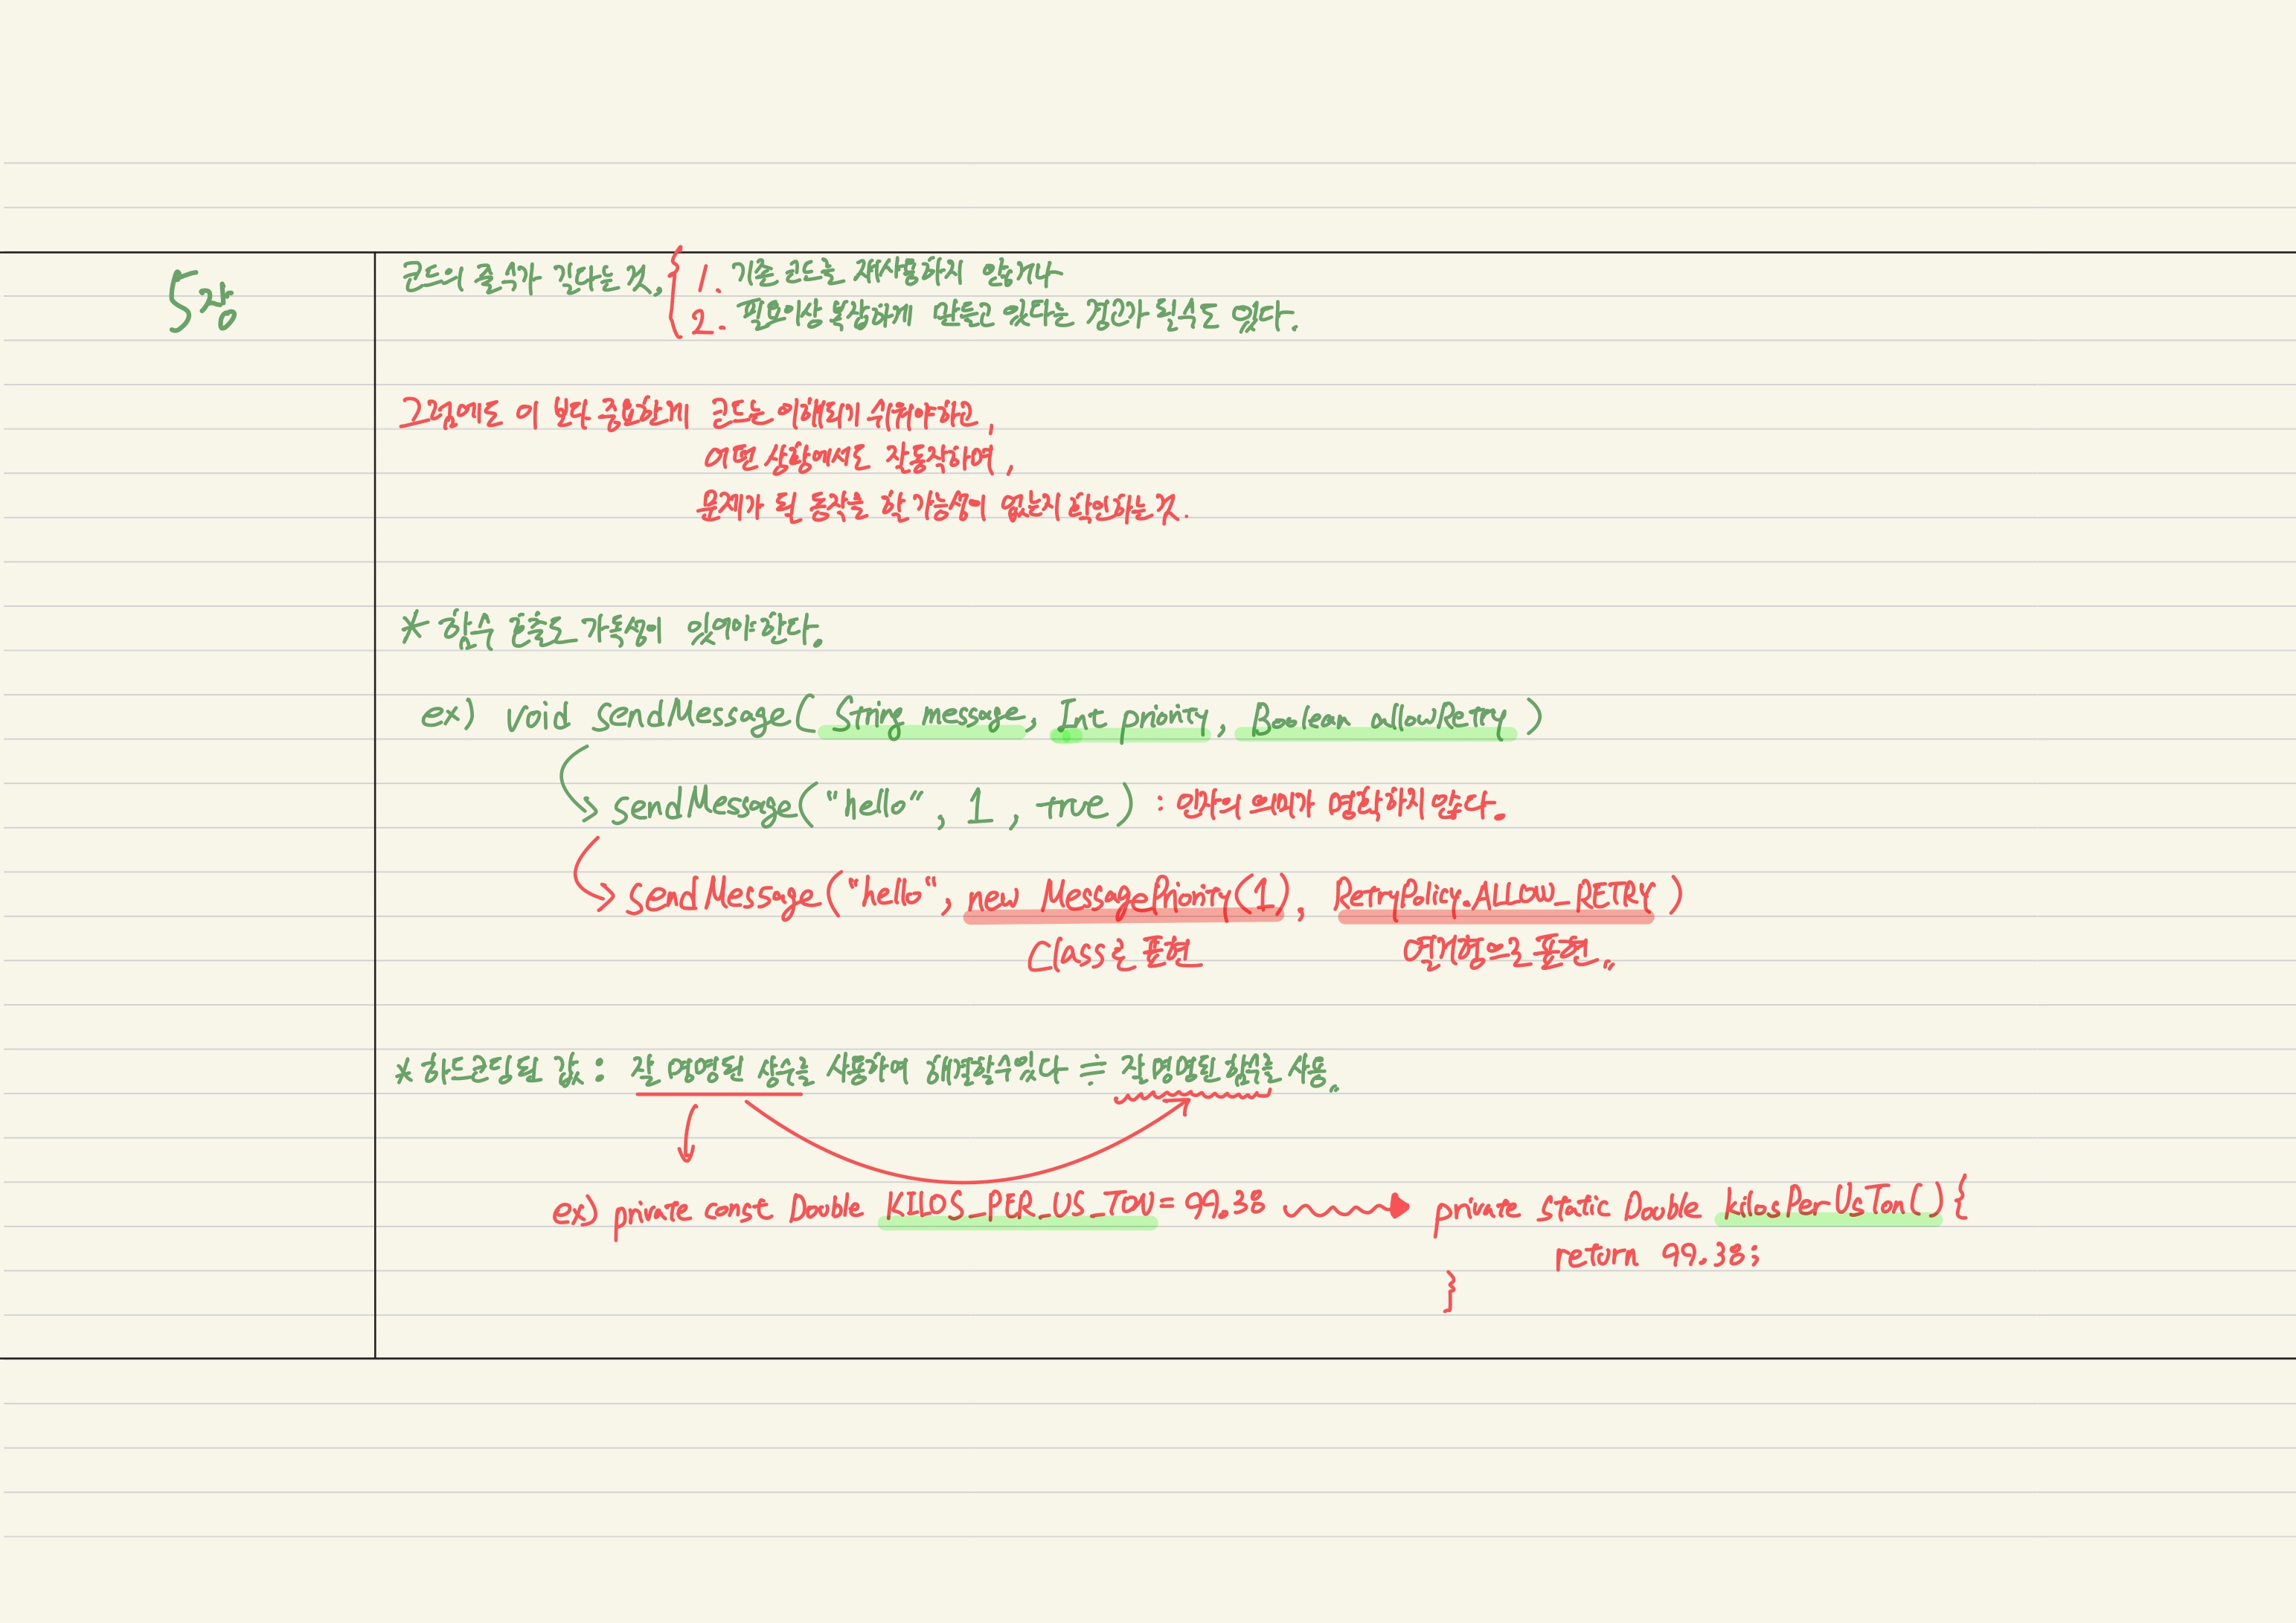 5장
코드의 줄 수가 길다는 것, 1. 기존 코드를 재사용하지 않거나
2. 필요이상 복잡하게 만들고 있다는 경고가 될수도 있다.
그럼에도 이 보다 중요한게 코드는 이해되기 쉬워야하고,
어떤 상황에서도 잘동작하며,
문제가 될 동작을 할 가능성이 없는지 확인하는것.
* 함수 호출도 가독성이 있어야한다.
ex) void sendMessage( String message, Int priority, Boolean allowRetry )
sendMessage("hello", 1, true) : 인자의 의미가 명확하지 않다.
sendMessage("hello", new MessagePriority(1), RetryPolicy.ALLOW_RETRY )
Class로 표현 열거형으로 표현..
* 하드코딩된 값 : 잘 명명된 상수를 사용하여 해결할수있다 ≒ 잘 명명된 함수를 사용..
ex) private const Double KILOS_PER_US_TON = 99.38 private static Double kilosPerUsTon() {
return 99.38;
}